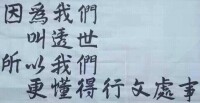 因為我們
叫透世
所以我們
更懂得行文處事